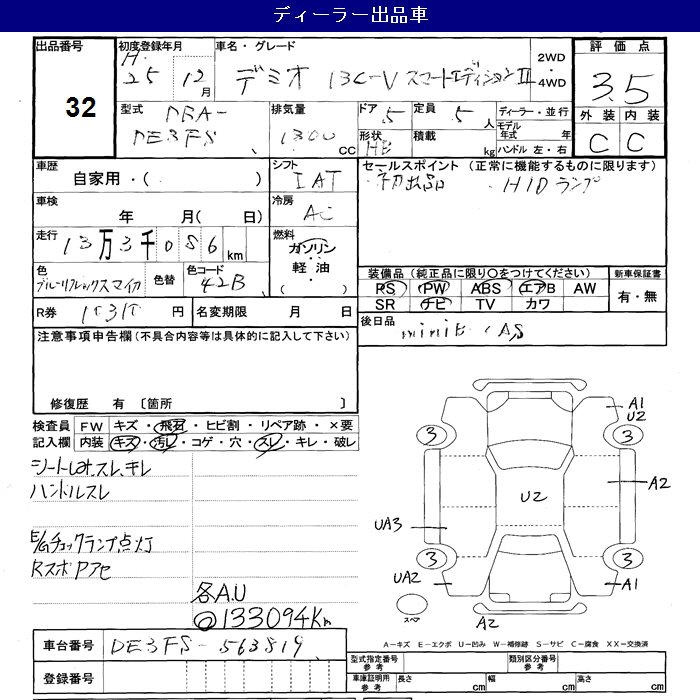 ディーラー出品車
出品番号
32
初度登録年月
H. 25 12 月
車名・グレード
デミオ 13C-V スマートエディションII
2WD
・
4WD
評価点
3.5
外装 内装
C C
型式
DBA-
DE3FS
排気量
1300 cc
ドア 5
形状 HB
定員 5 人
積載 kg
ディーラー・並行
モデル年式 年
ハンドル 左・右
車歴
自家用・( )
シフト
IAT
車検
年 月( 日)
冷房
AC
走行
13万3千086 km
燃料
ガソリン
軽油
・( )
色
ブルーリフレックスマイカ
色替
色コード
42B
R券
円
名変期限 月 日
セールスポイント (正常に機能するものに限ります)
・初出品 ・HIDランプ
装備品 (純正品に限り○をつけてください)
PS PW ABS エアB AW
SR ナビ TV カワ
新車保証書
有・無
後日品
注意事項申告欄 (不具合内容等は具体的に記入して下さい)
修復歴 有 〔箇所 〕
検査員記入欄
FW キズ・飛石・ヒビ割・リペア跡・×要
内装 キズ・汚レ・コゲ・穴・スレ・キレ・破レ
シートシミ汚、スレ、キレ
ハンドルスレ
E/Gチェックランプ点灯
RスポPアセ
各A.U
◎133094Km
A1
U2
3
3
A2
U2
UA3
3
3
UA2
A1
A2
スペア
A-キズ E-エクボ U-凹み W-補修跡 S-サビ C-腐食 XX-交換済
車台番号
DE3FS-563819
登録番号
型式指定番号 参考
類別区分番号 参考
車庫証明用 参考
長さ cm
幅 cm
高さ cm